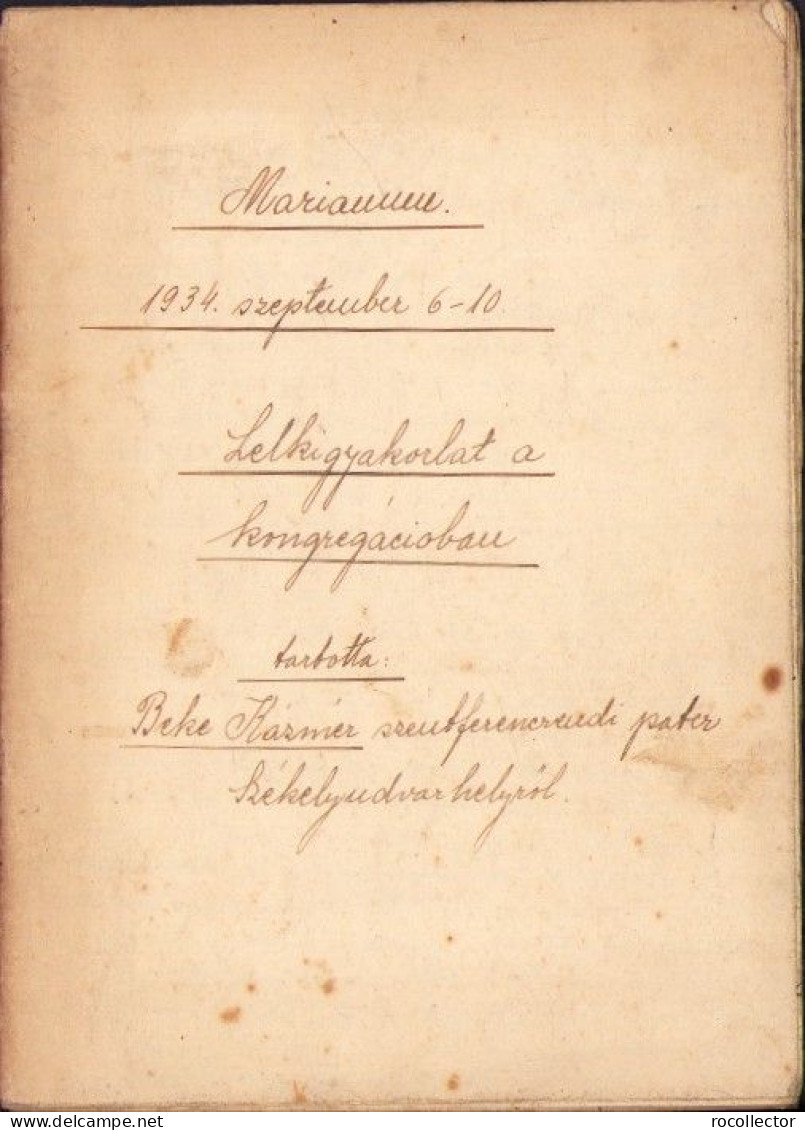 Marianum.
1934. szeptember 6-10.
Lelkigyakorlat a
kongregációban
tartotta:
Beke Kázmér szentferencrendi pater
Székelyudvarhelyről.
Delcampe.net
rocollector